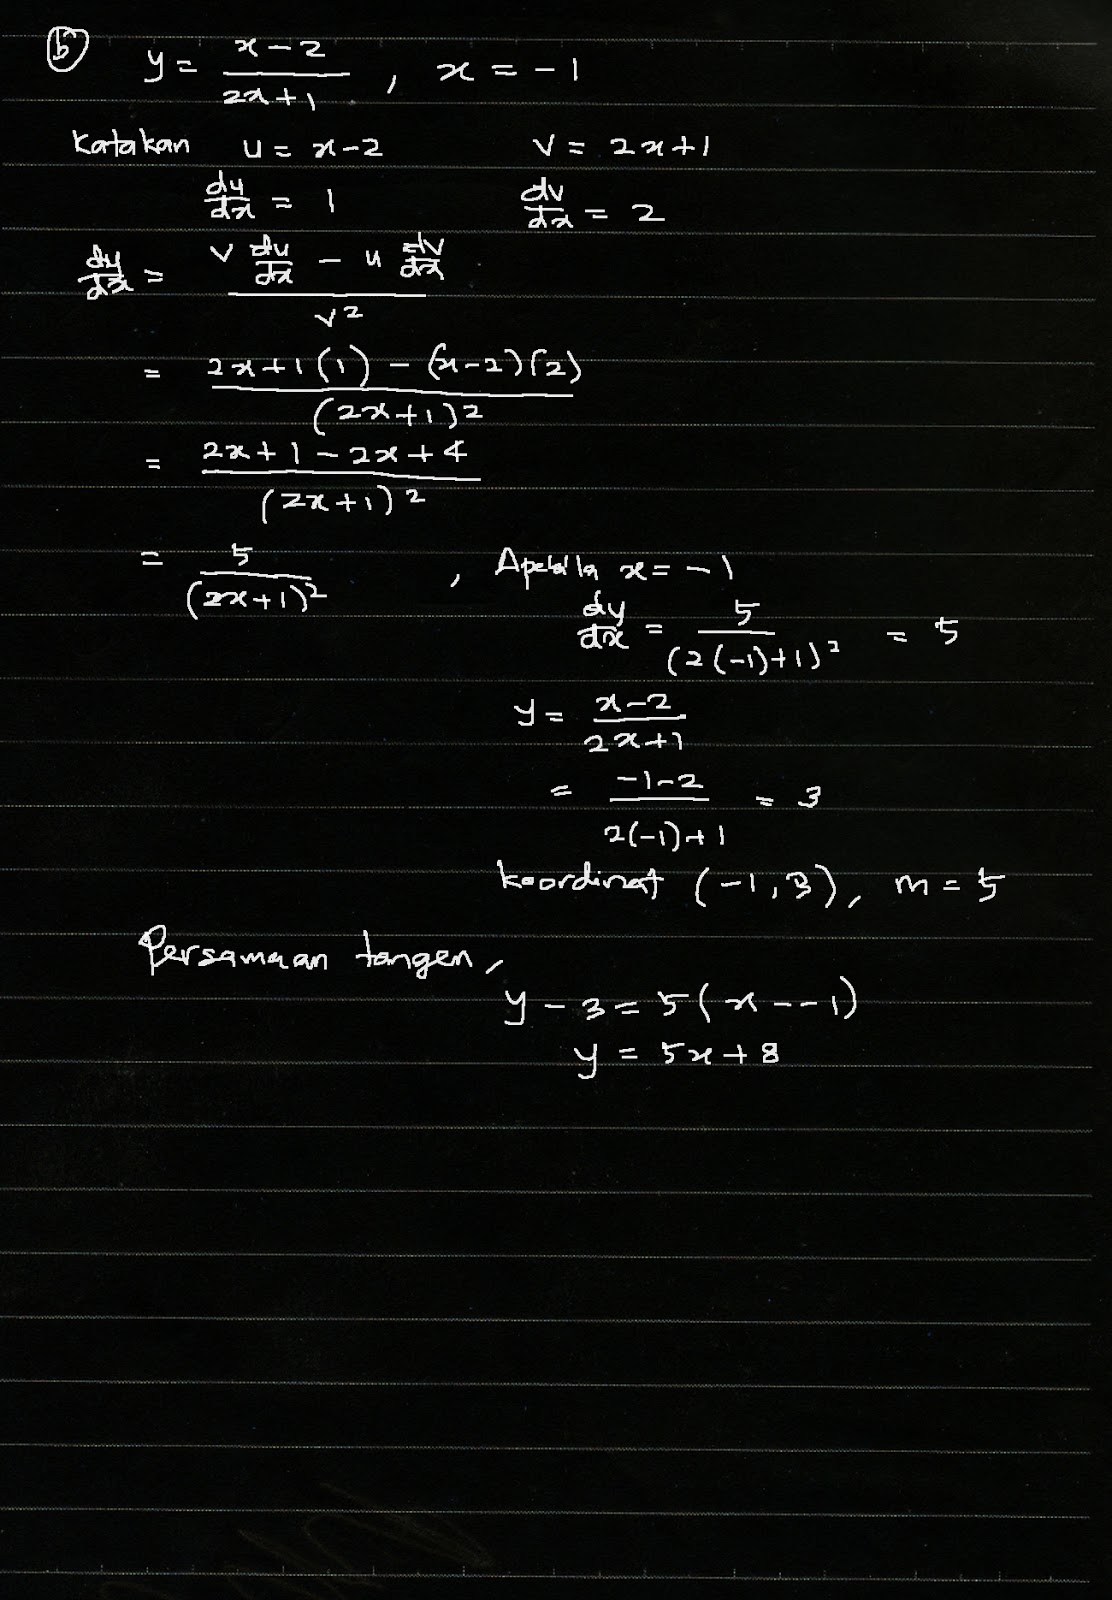 (b) y = (x-2)/(2x+1), x = -1
Katakan u = x-2 v = 2x+1
du/dx = 1 dv/dx = 2
dy/dx = (v du/dx - u dv/dx)/v²
= (2x+1(1) - (x-2)(2))/(2x+1)²
= (2x+1-2x+4)/(2x+1)²
= 5/(2x+1)² , Apabila x = -1
dy/dx = 5/(2(-1)+1)² = 5
y = (x-2)/(2x+1)
= (-1-2)/(2(-1)+1) = 3
koordinat (-1,3), m = 5
Persamaan tangen,
y - 3 = 5(x--1)
y = 5x+8